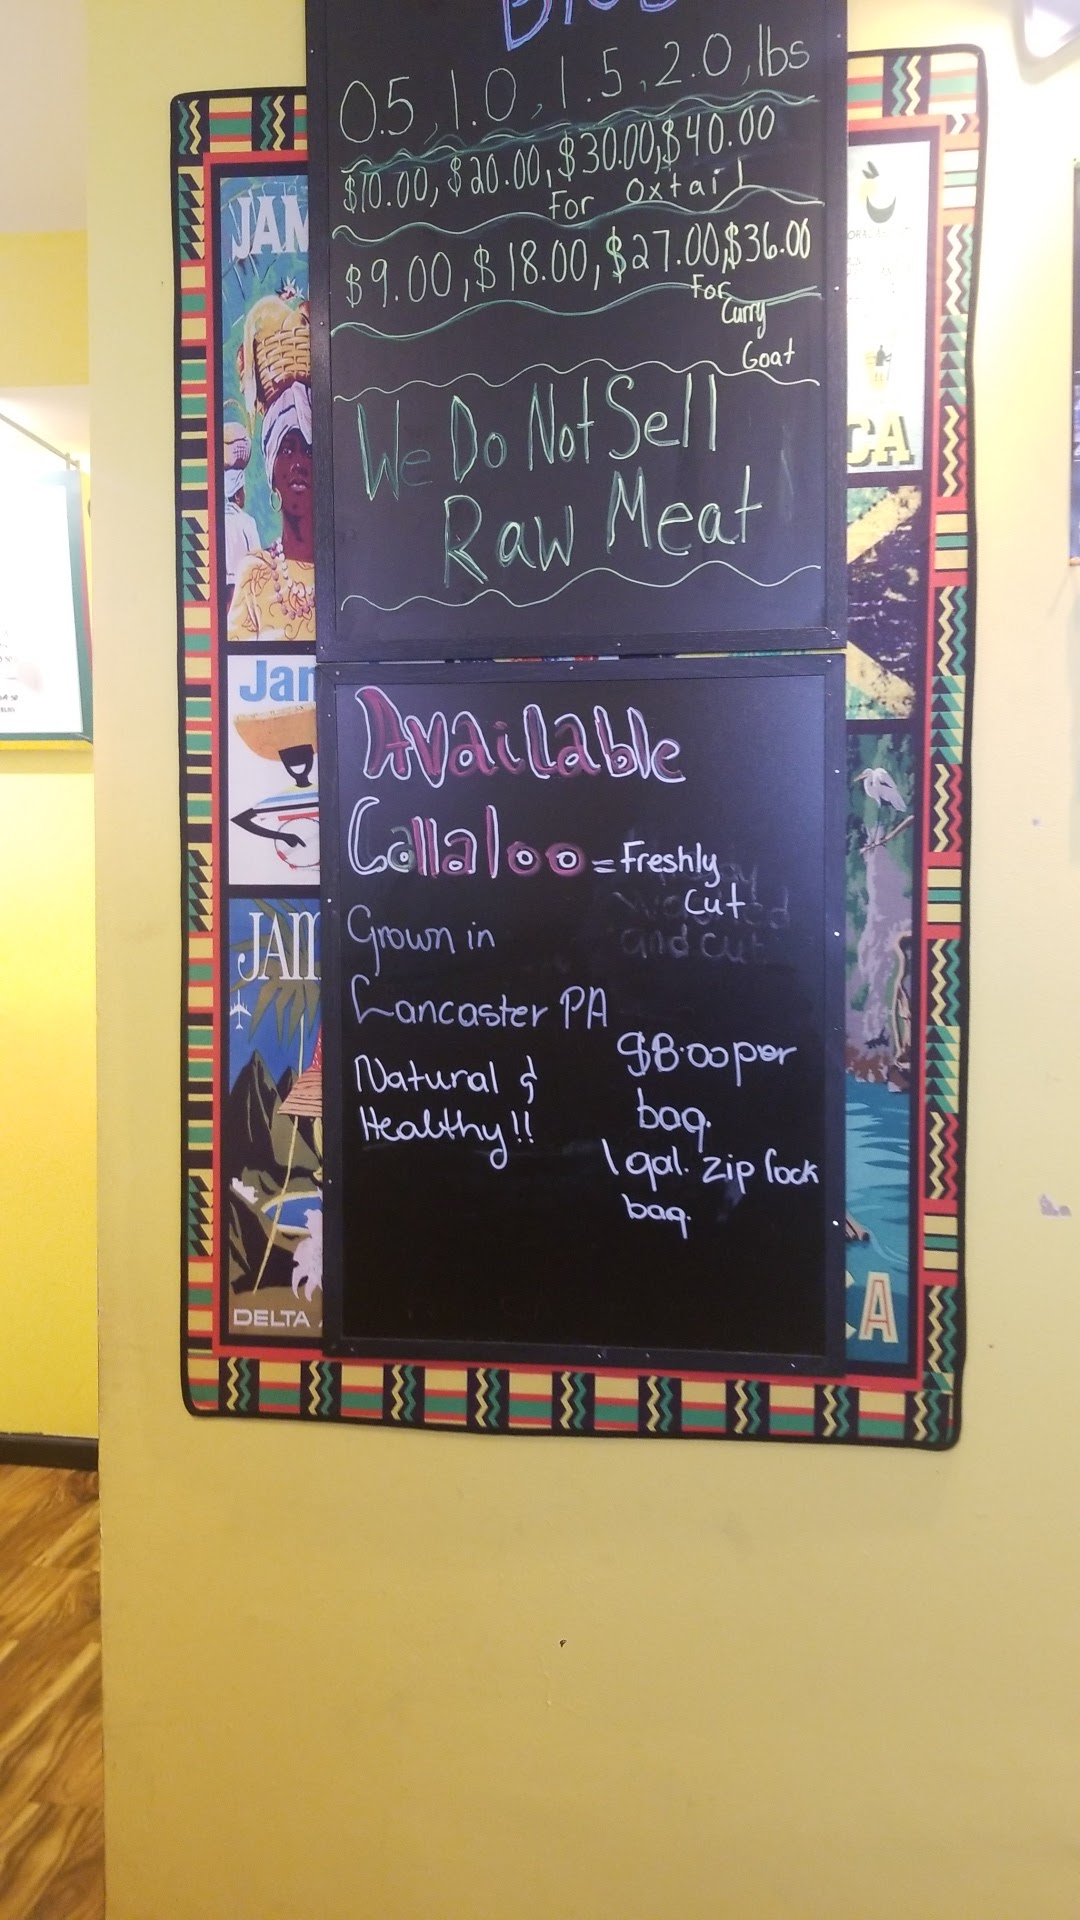 0.5, 1.0, 1.5, 2.0, lbs
$10.00, $20.00, $30.00, $40.00
For Oxtail
$9.00, $18.00, $27.00, $36.00
For
Curry
Goat
We Do Not Sell
Raw Meat
Available
Callaloo = Freshly
Cut
and cut
Grown in
Lancaster PA
Natural &
Healthy!!
$8.00 per
bag.
1 gal. Zip lock
bag.
JAM
Jam
JAM
DELTA
CA
A